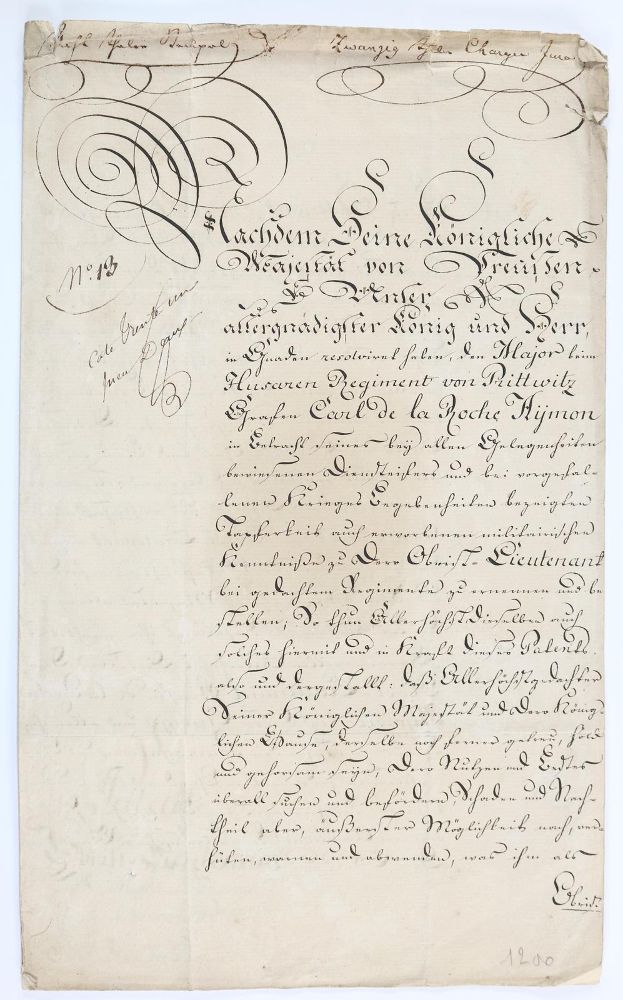 Thaler Stempel Zwanzig Charger Jura
Nachdem Seine Königliche
Majestät von Preußen
Unser
allergnädigster König und Herr,
in Gnaden resolviret haben, den Major beim
Husaren Regiment von Prittwitz
Grafen Carl de la Roche Aÿmon
in Betracht seines bey allen Gelegenheiten
bewiesenen Diensteifers und bei vorgefal-
lenen Krieges Begebenheiten bezeigten
Tapferkeit auch erworbenen militairischen
Kenntniße zu Dero Obrist-Lieutenant
bei gedachtem Regimente zu ernennen und be
stellen; So thun Allerhöchst Dieselben auch
solches hiermit und in Kraft dieses Patents,
also und dergestallt: daß Allerhöchstgedachter
Seiner Königlichen Majestät und Dero König-
lichen Hause, derselbe noch ferner getreu, hold
und gehorsam seyn, Dero Nutzen und Bestes
überall suchen und befördern, Schaden und Nach-
theil aber, äußerster Möglichkeit nach, ver-
hüten, warnen und abwenden, was ihm als
Obrist
No. 13
1200